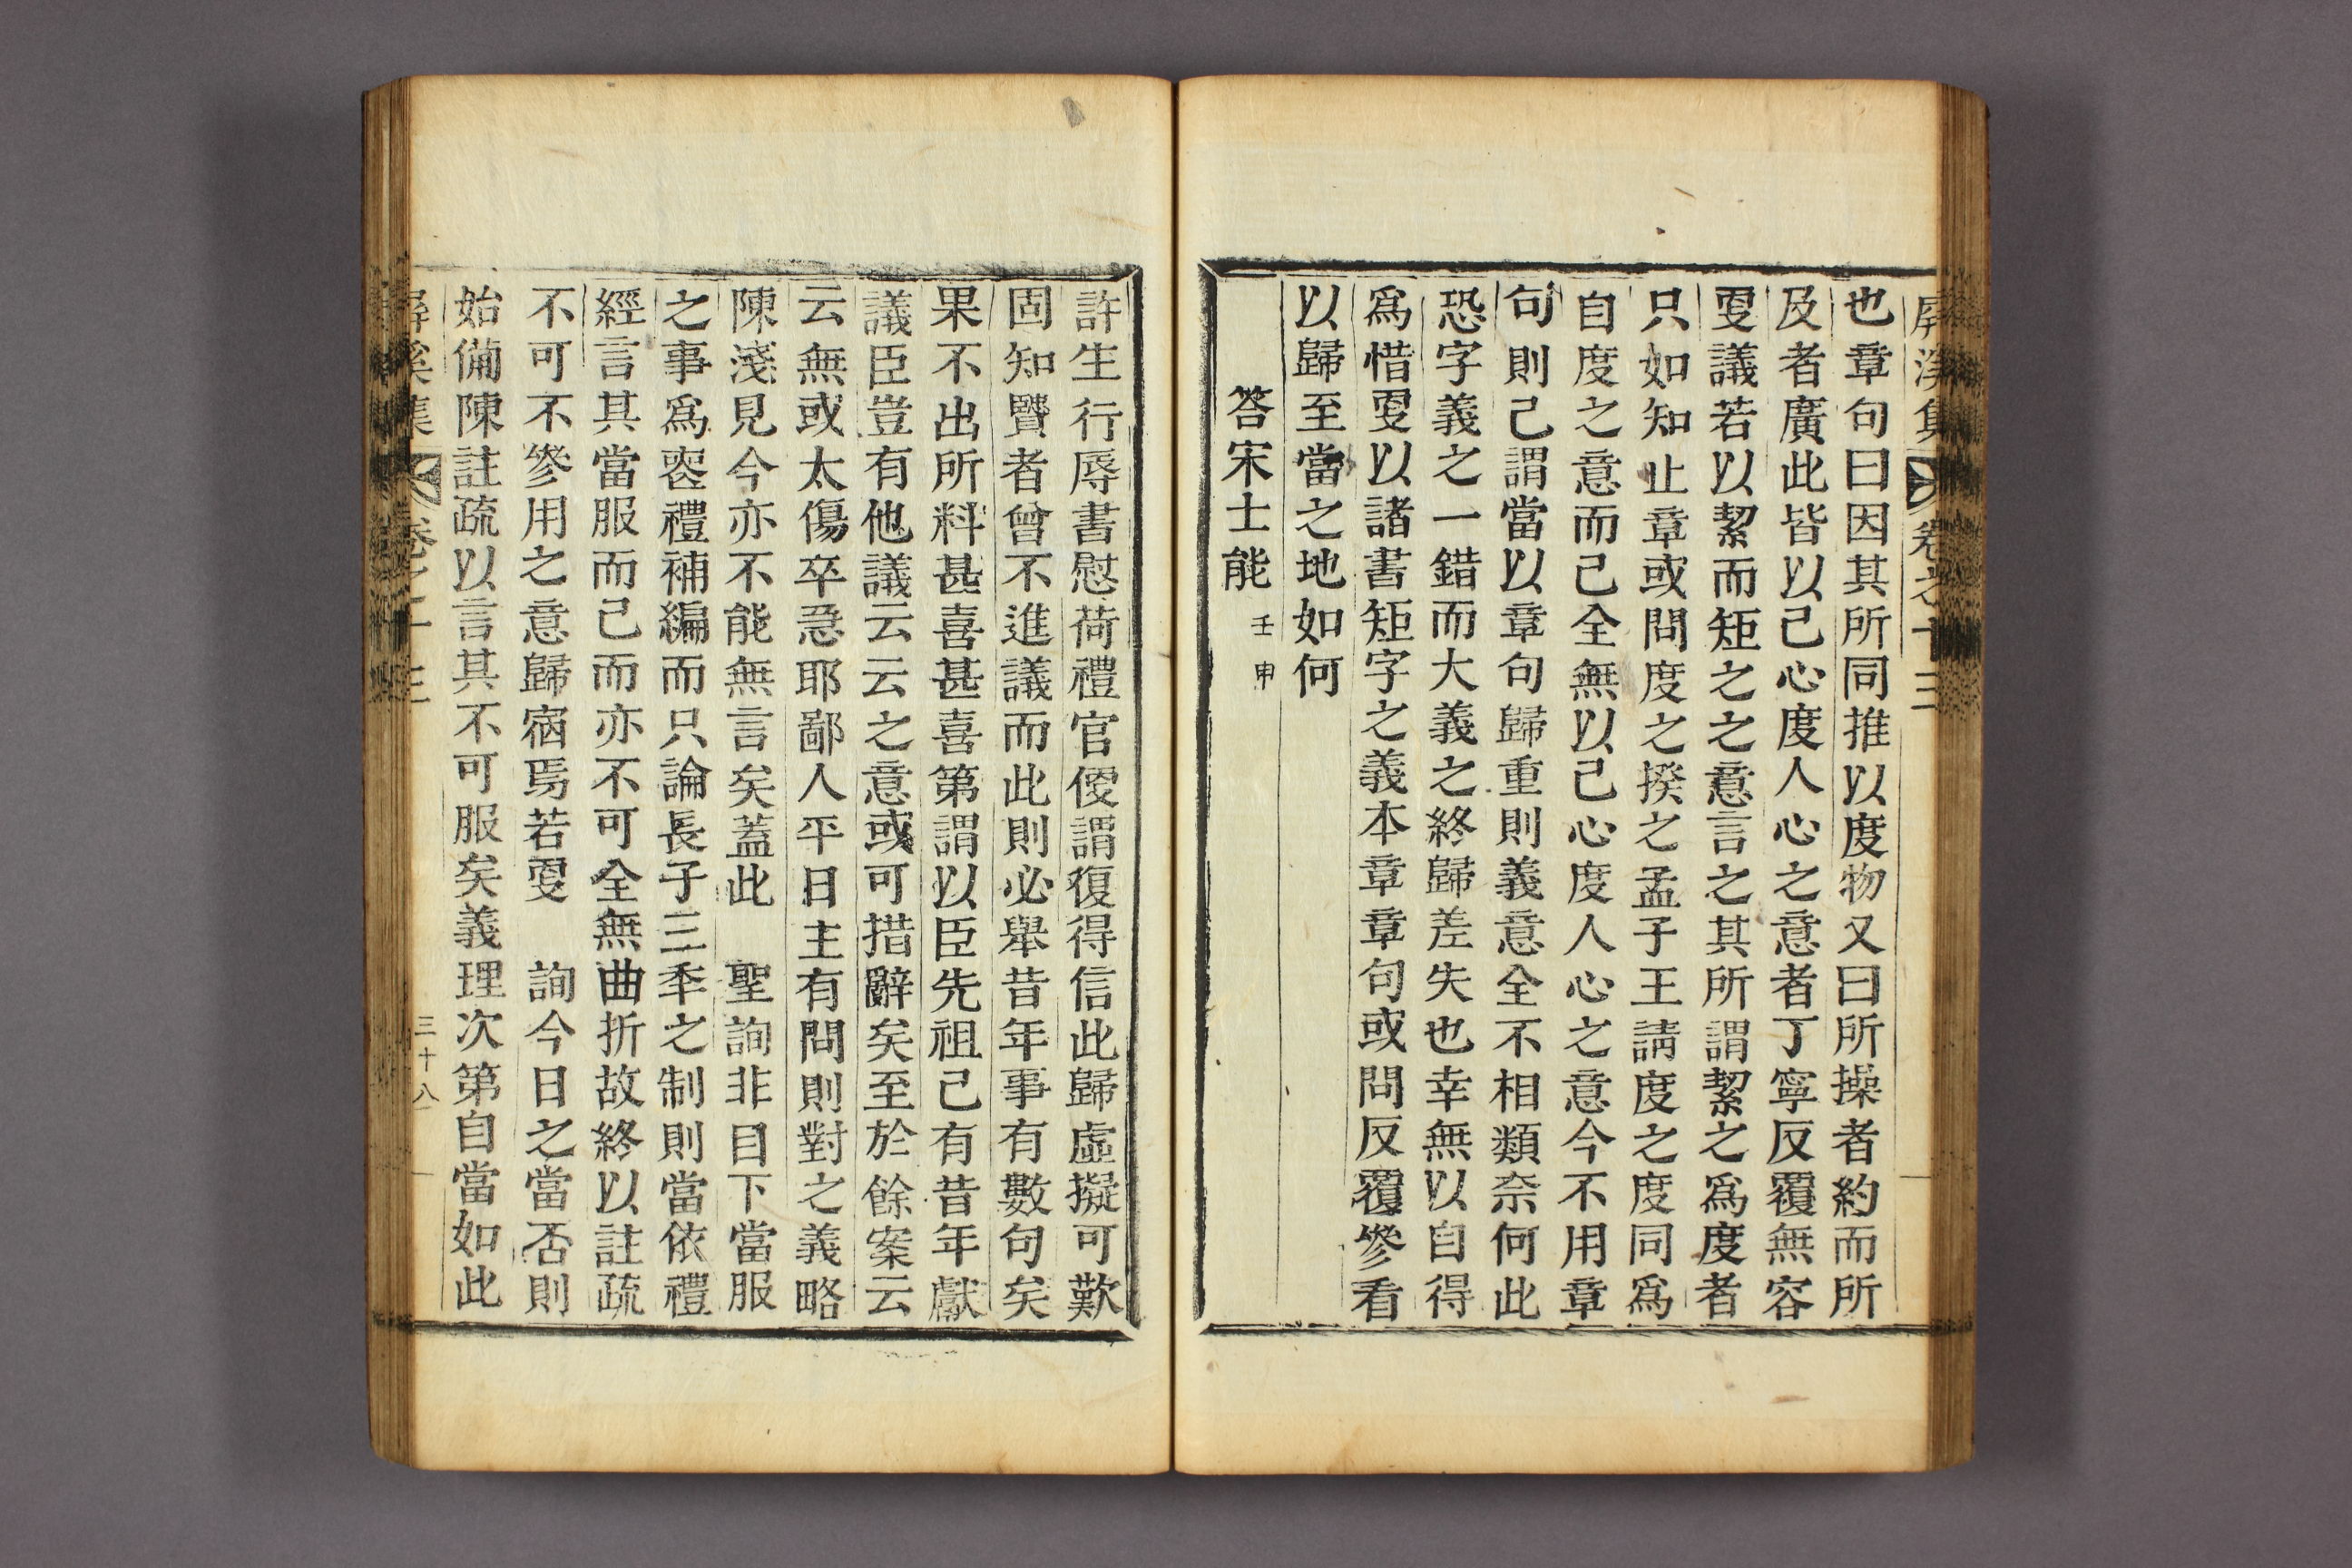 屛溪集 卷之十三
也章句曰因其所同推以度物又曰所操者約而所
及者廣此皆以己心度人心之意者丁寧反覆無容
更議若以絜而矩之之意言之其所謂絜之爲度者
只如知止章或問度之揆之孟子王請度之度同爲
自度之意而已全無以己心度人心之意今不用章
句則己謂當以章句歸重則義意全不相類奈何此
恐字義之一錯而大義之終歸差失也幸無以自得
爲惜更以諸書矩字之義本章章句或問反覆參看
以歸至當之地如何
答宋士能 壬申
許生行辱書慰荷禮官便謂復得信此歸虛擬可歎
固知賢者曾不進議而此則必舉昔年事有數句矣
果不出所料甚喜甚喜第謂以臣先祖已有昔年獻
議臣豈有他議云云之意或可措辭矣至於餘案云
云無或太傷卒急耶鄙人平日主有問則對之義略
陳淺見今亦不能無言矣蓋此 聖詢非目下當服
之事爲喪禮補編而只論長子三年之制則當依禮
經言其當服而已而亦不可全無曲折故終以註疏
不可不參用之意歸宿焉若更 詢今日之當否則
始備陳註疏以言其不可服矣義理次第自當如此
屛溪集 卷之十三 三十八